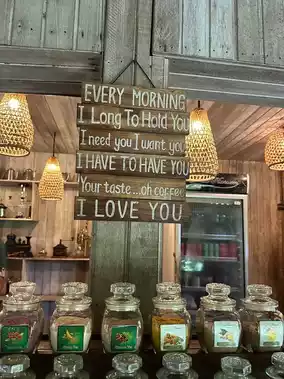 EVERY MORNING
I Long To Hold You
I need you I want you
I HAVE TO HAVE YOU
Your taste...oh coffee
I LOVE YOU